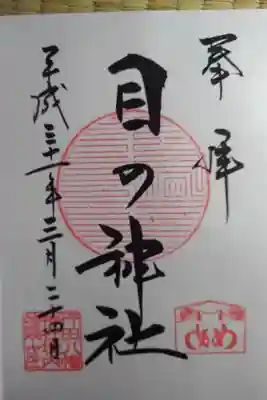 奉拝
目の神社
平成三十一年三月二十四月